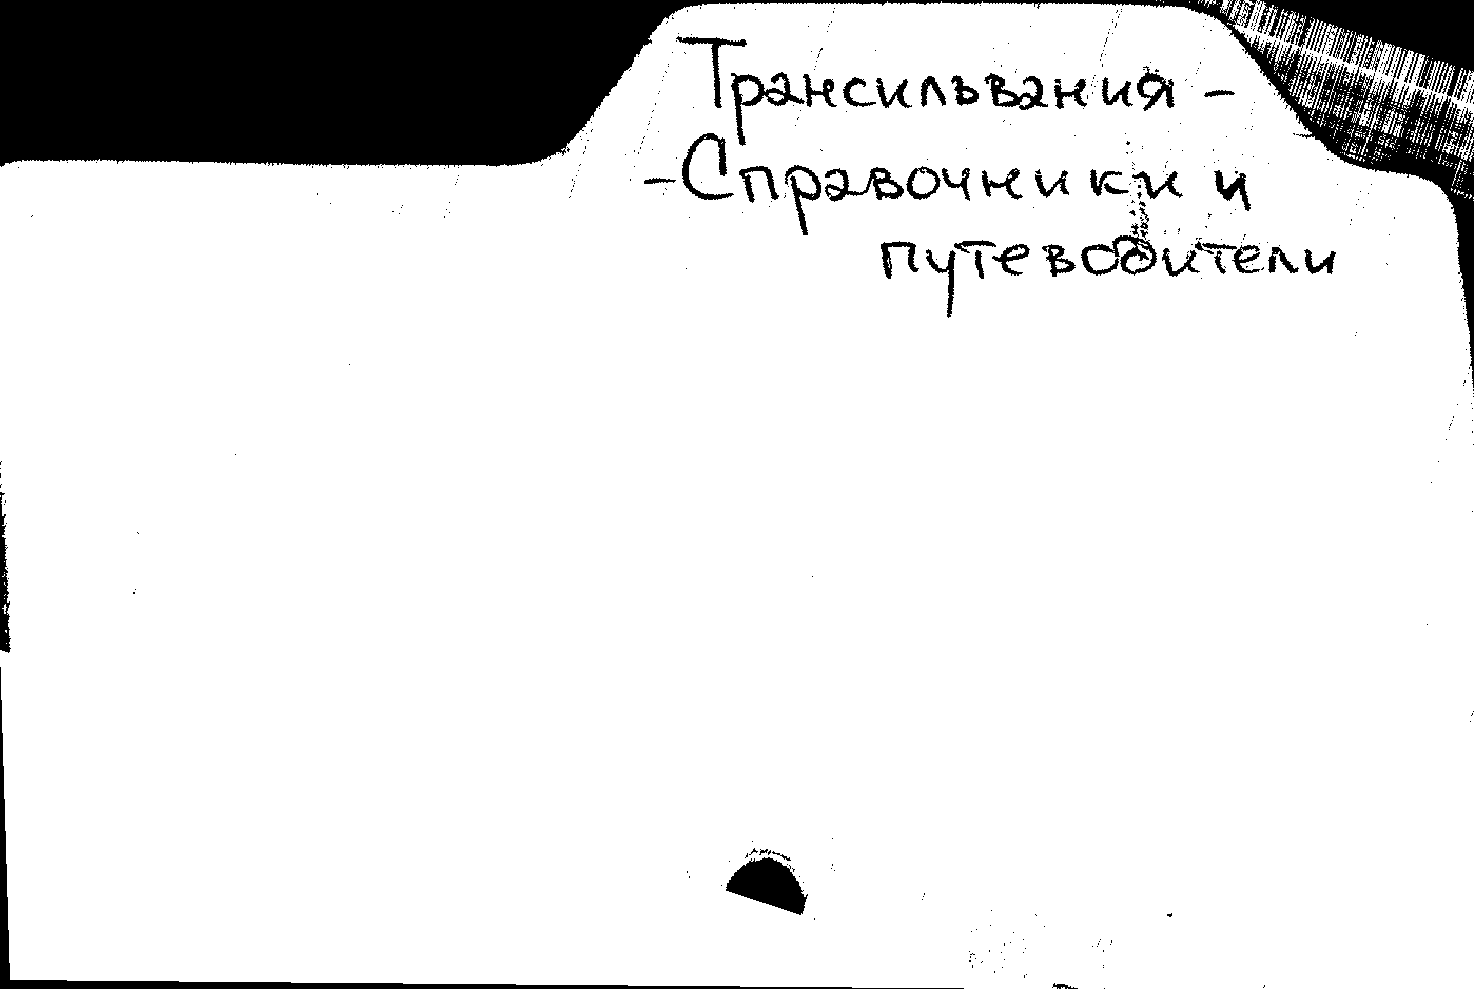 Трансильвания -
- Справочники и
путеводители